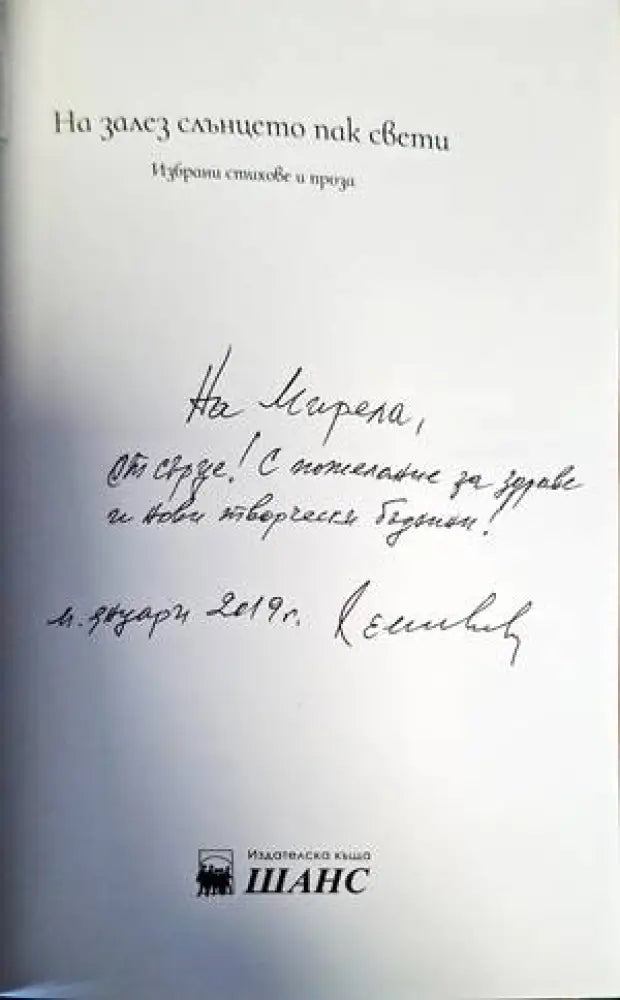 На залез слънцето пак свети
Избрани стихове и проза
На Мирела,
от сърце! С пожелание за здраве
и нови творчески бъднини!
м. януари 2019 г.
Издателска къща
ШАНС